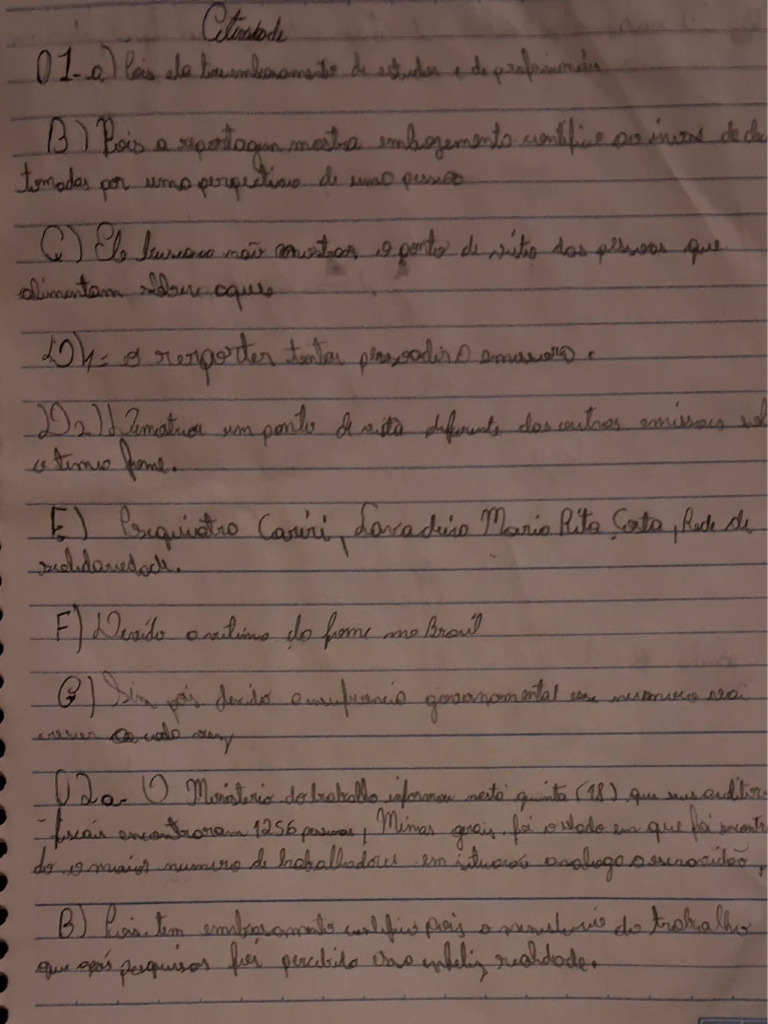 Atividade
01-a) Pois ela tem embasamento de estudos e de profissionais
B) Pois a reportagem mostra embazamento cientifico ao invez de da
tomadas por uma perspectiva de uma pessoa
C) Ele busca não mostrar o ponto de vista das pessoas que
alimentam sobre
D1= o reporter tenta
D2) Demostrar um ponto de vista diferente das outras emissoras sob
o tema fome.
E) Psiquiatra Cariri, Lavadeira Maria Rita Costa, Rede de
solidariedade.
F) Devido a vitima da fome no Brasil
G) Sim pois devido governamental esse numero vai
crescer cada vez
02a- O Ministerio do trabalho informou nesta quinta (18) que seus auditor
-fiscais encontraram 1256 pessoas, Minas gerais foi o estado em que foi encont
do o maior numero de trabalhadores em situação analoga a escravidão,
B) Pois tem embasamento cientifico pois o ministerio do trabalho
que após pesquisas foi percebido essa infeliz realidade.